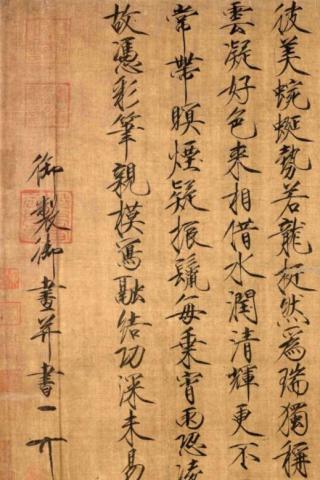 彼美蜿蜒勢若龍挺然爲瑞獨稱
雲凝好色來相借水潤清輝更不
常帶暝煙疑振鬣每乘宵雨恐凌
故憑彩筆親模寫融結功深未易
御製御畫并書